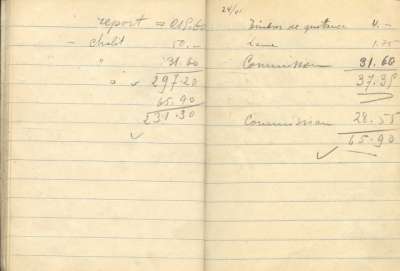 report = 218.60
- Chalit 50.-
" 31.60
297.20
65.90
231.30
24/01
Timbre de quittance 4.-
Lame 1.75
Commission 31.60
37.35
Commission 28.55
65.90